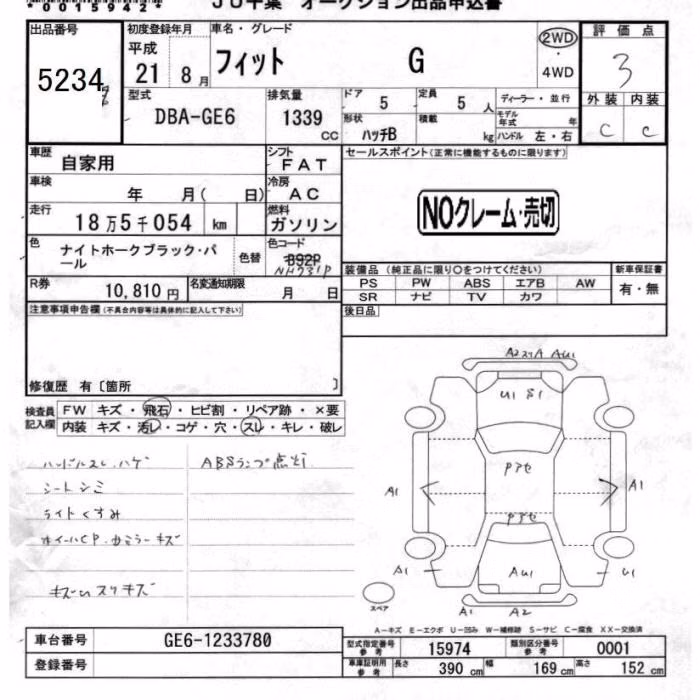 *0015942*
JU千葉 オークション出品申込書
出品番号 初度登録年月 車名・グレード 2WD 評価点
5234 平成 21 8月 フィット G 4WD 3
型式 排気量 ドア 5 定員 5人 ディーラー・並行 外装 内装
DBA-GE6 1339 cc 形状 ハッチB 積載 kg モデル年式 年 ハンドル 左・右 C C
車歴 自家用 シフト FAT セールスポイント(正常に機能するものに限ります)
車検 年 月( 日) 冷房 AC
走行 18万5千054 km 燃料 ガソリン NOクレーム・売切
色 ナイトホークブラック・パール 色替 色コード B92P
NH731P
装備品 (純正品に限り○をつけてください) 新車保証書
PS PW ABS エアB AW 有・無
SR ナビ TV カワ
R券 10,810円 名変通知期限 月 日
注意事項申告欄(不具合内容等は具体的に記入して下さい) 後日品
修復歴 有〔箇所 〕
検査員記入欄 FW キズ・飛石・ヒビ割・リペア跡・×要
内装 キズ・汚レ・コゲ・穴・スレ・キレ・破レ
ハンドルスレ.ハゲ ABSランプ点灯
シートシミ
ライトくすみ
キズ スリキズ
A2スリA AU1
U1 S1
Pアセ
A1 A1
Pアセ
A1 AU1 U1
スペア
A1 A2
A-キズ E-エクボ U-凹み W-補修跡 S-サビ C-腐食 XX-交換済
車台番号 GE6-1233780 型式指定番号 参考 15974 類別区分番号 参考 0001
登録番号 車庫証明用 参考 長さ 390 cm 幅 169 cm 高さ 152 cm